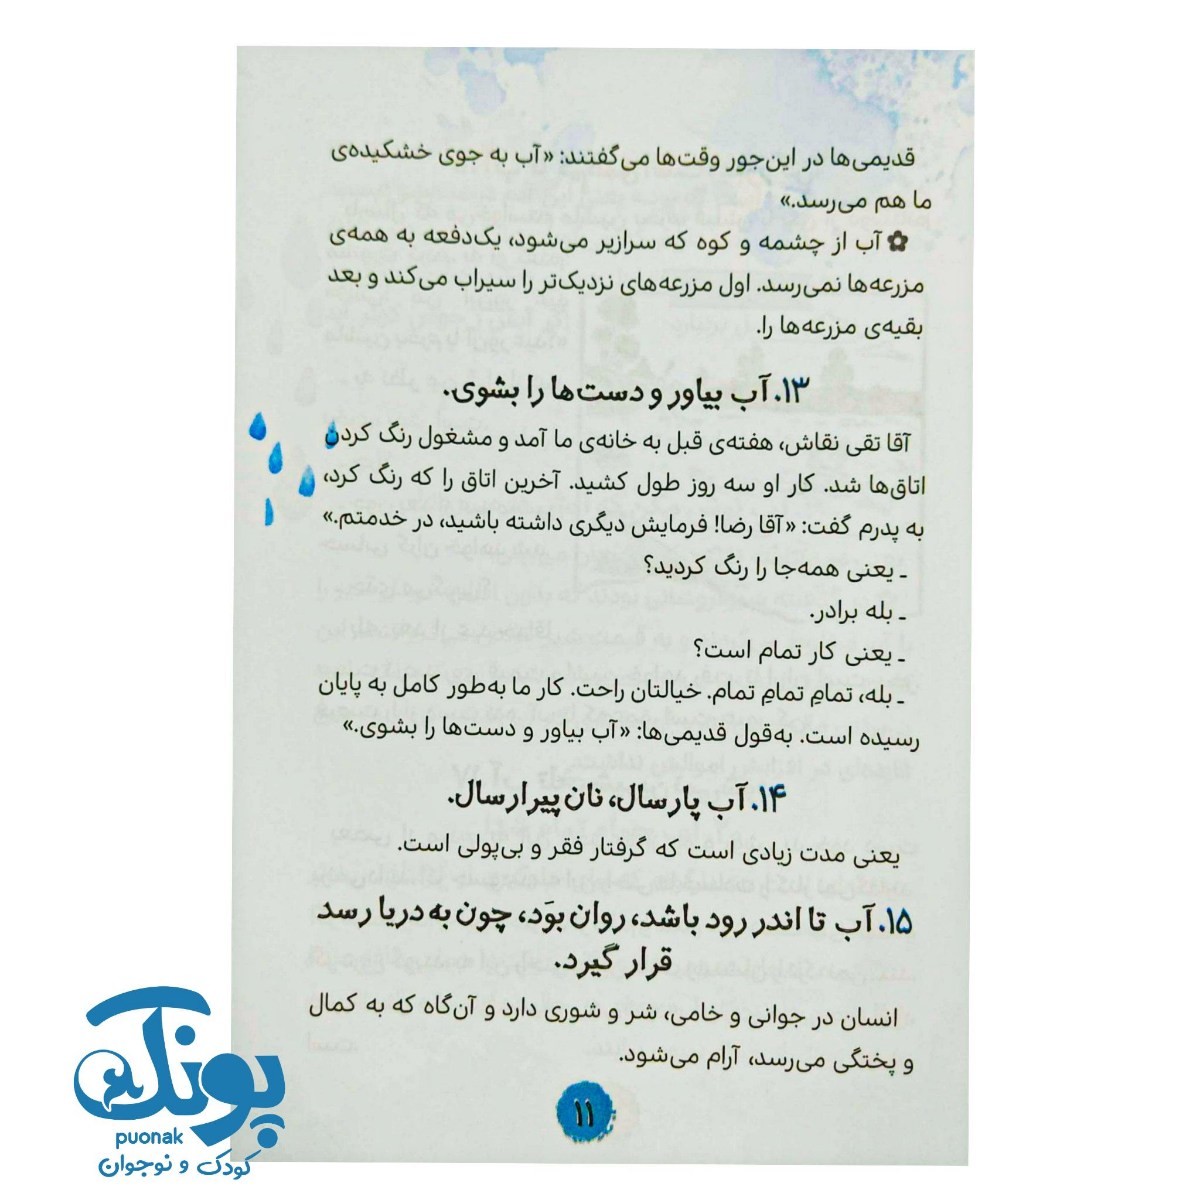 قدیمی‌ها در این‌جور وقت‌ها می‌گفتند: «آب به جوی خشکیده‌ی
ما هم می‌رسد.»
✿ آب از چشمه و کوه که سرازیر می‌شود، یک‌دفعه به همه‌ی
مزرعه‌ها نمی‌رسد. اول مزرعه‌های نزدیک‌تر را سیراب می‌کند و بعد
بقیه‌ی مزرعه‌ها را.
۱۳. آب بیاور و دست‌ها را بشوی.
آقا تقی نقاش، هفته‌ی قبل به خانه‌ی ما آمد و مشغول رنگ کردن
اتاق‌ها شد. کار او سه روز طول کشید. آخرین اتاق را که رنگ کرد،
به پدرم گفت: «آقا رضا! فرمایش دیگری داشته باشید، در خدمتم.»
ـ یعنی همه‌جا را رنگ کردید؟
ـ بله برادر.
ـ یعنی کار تمام است؟
ـ بله، تمامِ تمامِ تمام. خیالتان راحت. کار ما به‌طور کامل به پایان
رسیده است. به‌قول قدیمی‌ها: «آب بیاور و دست‌ها را بشوی.»
۱۴. آب پارسال، نان پیرارسال.
یعنی مدت زیادی است که گرفتار فقر و بی‌پولی است.
۱۵. آب تا اندر رود باشد، روان بوَد، چون به دریا رسد
قرار گیرد.
انسان در جوانی و خامی، شر و شوری دارد و آن‌گاه که به کمال
و پختگی می‌رسد، آرام می‌شود.
۱۱
پونک
puonak
کودک و نوجوان